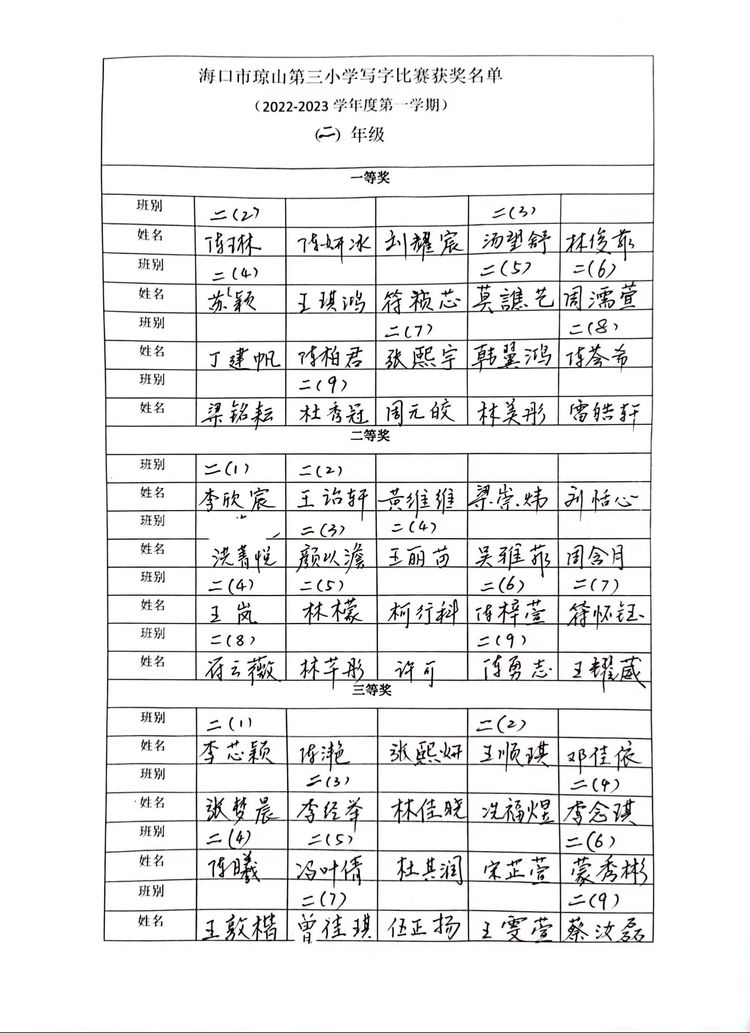 海口市琼山第三小学写字比赛获奖名单
（2022-2023 学年度第一学期）
（二）年级
一等奖
班别 二(2) 二(3)
姓名 陈琳 陈妍冰 刘耀宸 汤望舒 林俊菲
班别 二(4) 二(5) 二(6)
姓名 苏颖 王琪鸿 符颖芯 莫譙艺 周濡萱
班别 二(7) 二(8)
姓名 丁建帆 陈柏君 张熙宇 韩翼鸿 陈荟希
班别 二(9)
姓名 梁铭耘 杜秀冠 周元皎 林美彤 雷皓轩
二等奖
班别 二(1) 二(2)
姓名 李欣宸 王诒轩 黄维维 梁崇炜 刘恬心
班别 二(3) 二(4)
姓名 洗菁悦 颜以澹 王丽苗 吴雅菲 周含月
班别 二(4) 二(5) 二(6) 二(7)
姓名 王岚 林檬 柯行科 陈梓萱 符怀钰
班别 二(8) 二(9)
姓名 符云薇 林芊彤 许可 陈勇志 王耀葳
三等奖
班别 二(1) 二(2)
姓名 李芯颖 陈滟 张熙妍 王顺琪 邓佳依
班别 二(3) 二(4)
姓名 张梦晨 李经举 林佳晓 冼福煜 李念琪
班别 二(4) 二(5) 二(6)
姓名 陈曦 冯叶倩 杜其润 宋芷萱 蒙秀彬
班别 二(7) 二(9)
姓名 王敦楷 曾佳琪 伍正扬 王雯萱 蔡汝磊